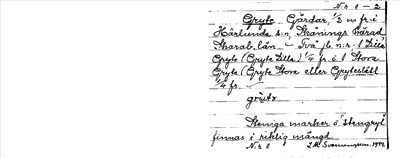 N:r 1 – 2
Gryte Gårdar, 1/2 v fr. i
Härlunda s:n, Skånings härad
Skarab. län. – Två jb. n:r: 1 Lilla
Gryte (Gryte Lilla) 1/4 fr. o. 1 Stora
Gryte (Gryte Stora eller
1/4 fr.
Steniga marker o. stengryt
finnas i riklig mängd.
N:r